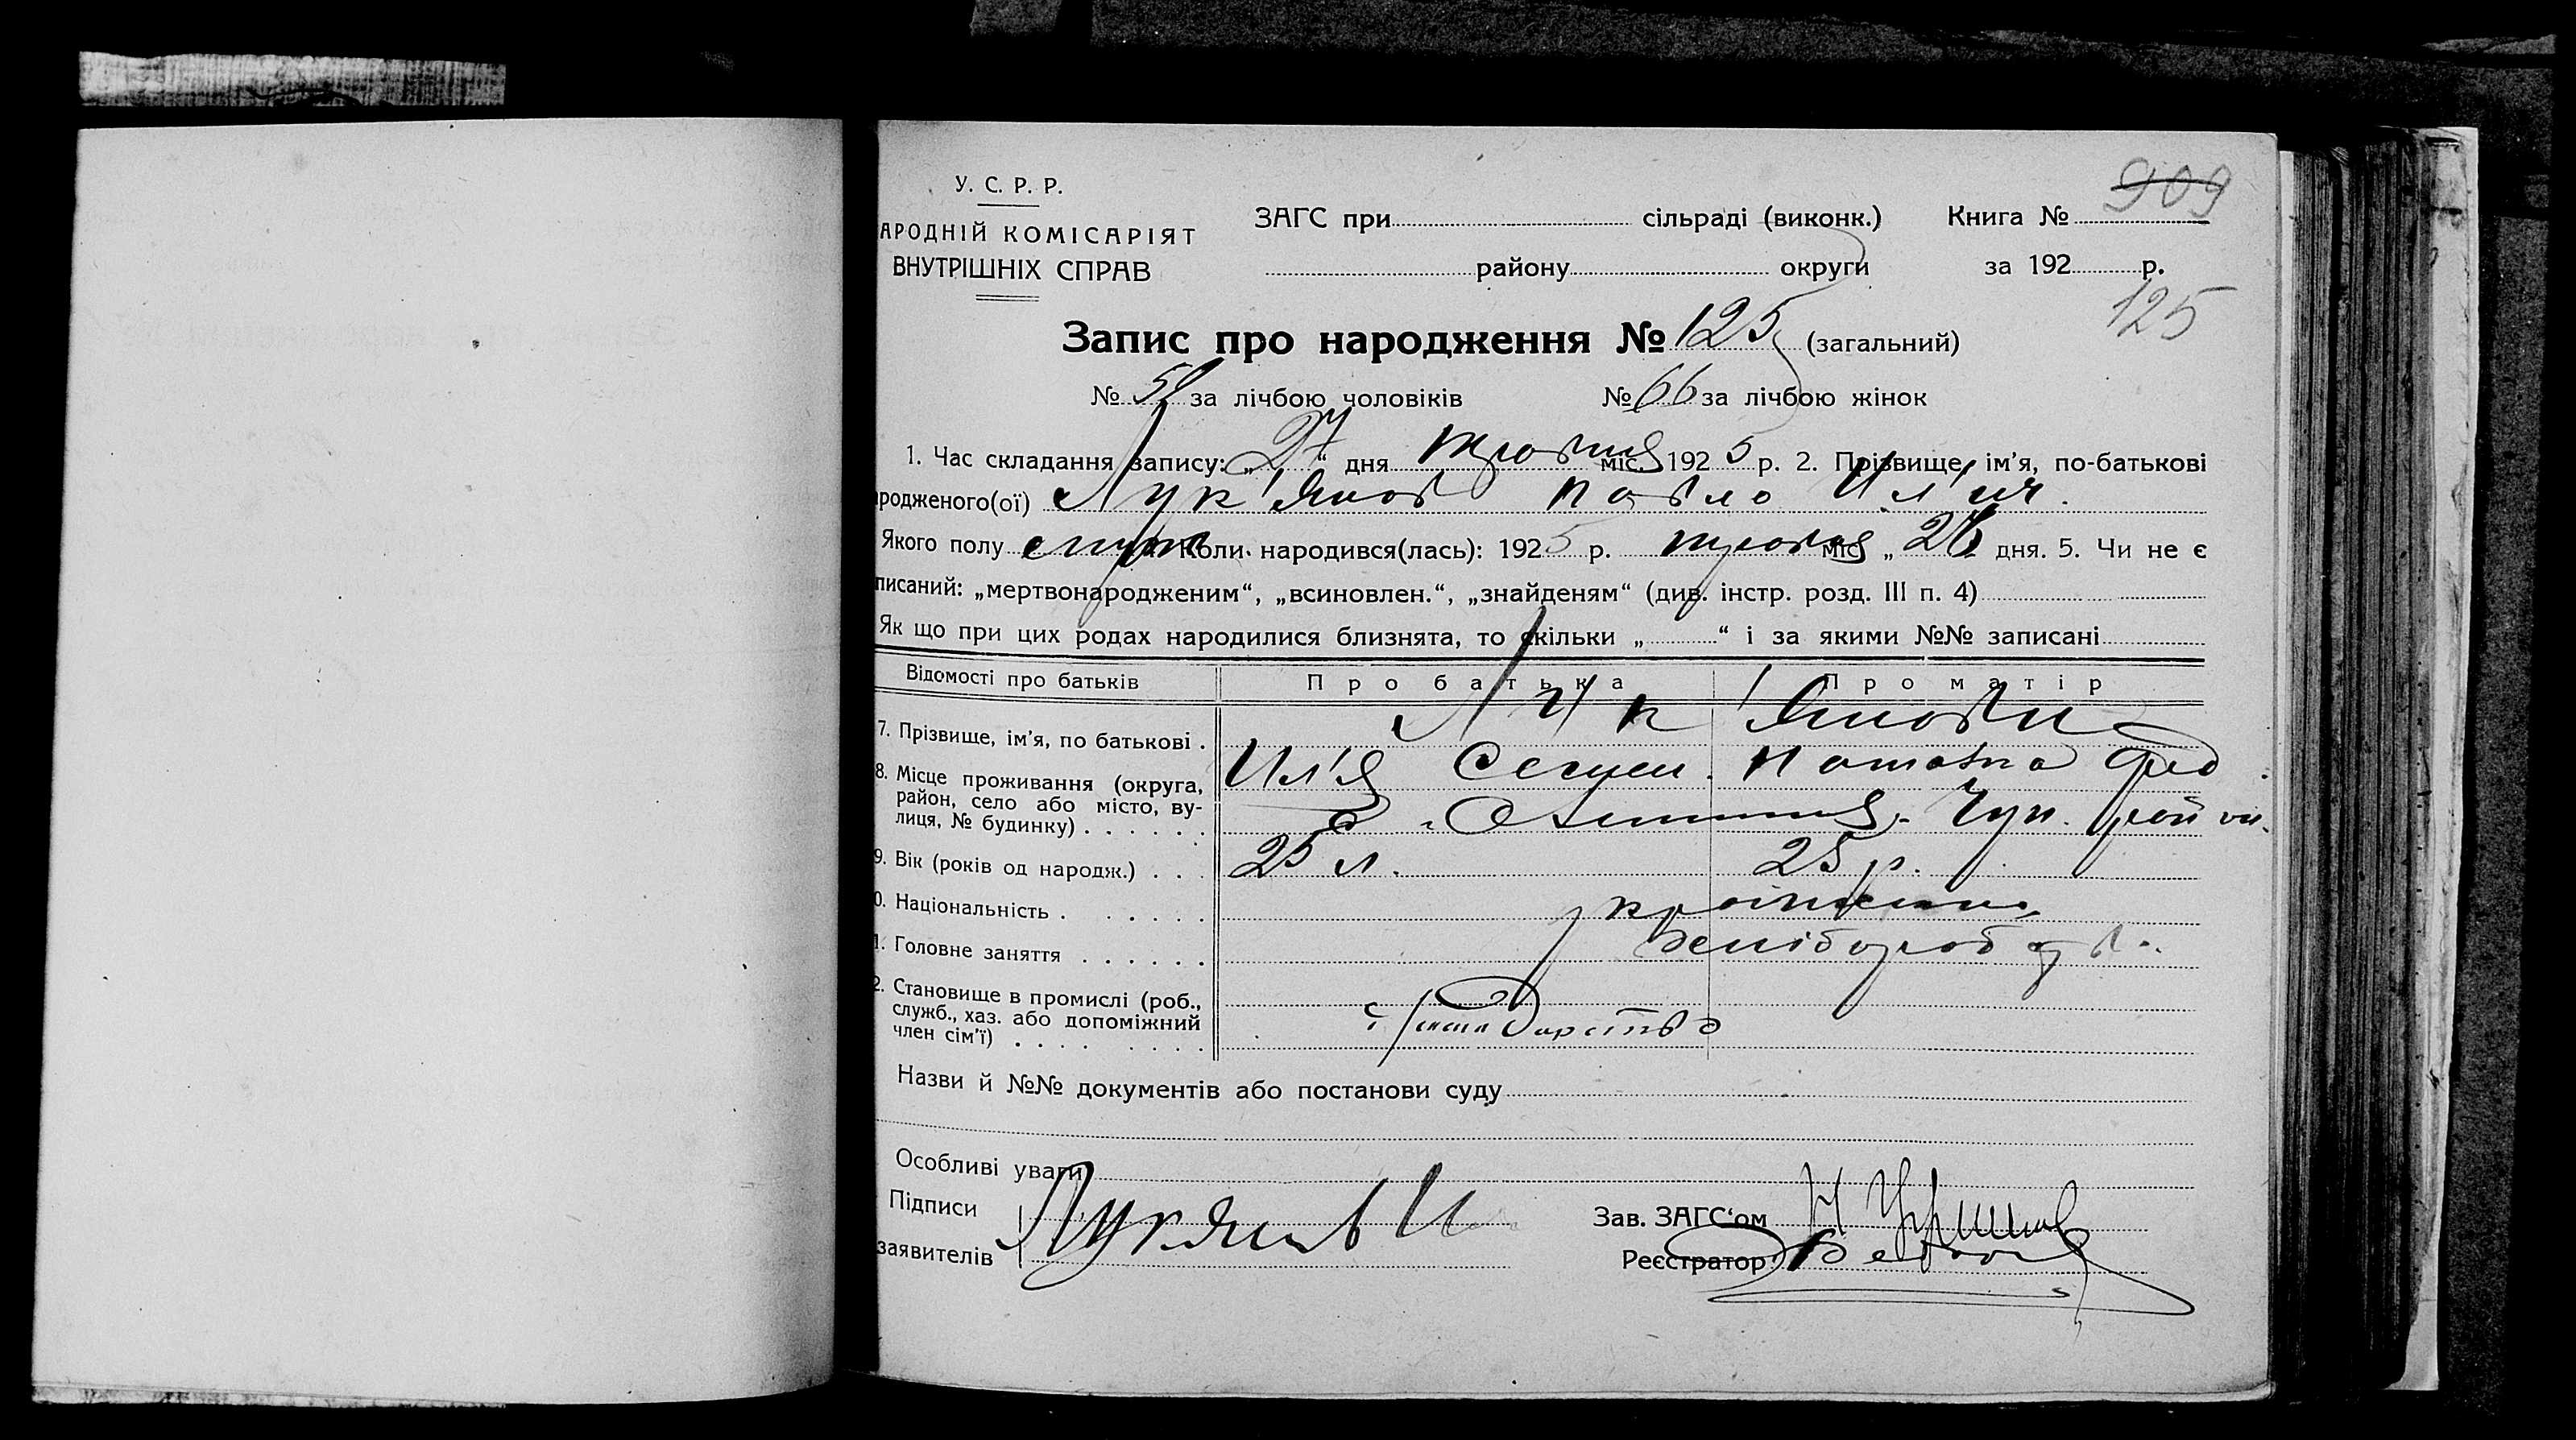 У. С. Р. Р.
АРОДНІЙ КОМІСАРІЯТ
ВНУТРІШНІХ СПРАВ
ЗАГС при сільраді (виконк.) Книга № 909
району округи за 192 р.
125
Запис про народження № 125 (загальний)
№ за лічбою чоловіків № 66 за лічбою жінок
1. Час складання запису: „27“ дня травня міс. 1925 р. 2. Прізвище, ім’я, по-батькові
ародженого(ої) Лук'янов Павло Ил'ич.
Якого полу Коли народився(лась): 1925 р. травня міс. „ 26 дня. 5. Чи не є
писаний: „мертвонародженим“, „всиновлен.“, „знайденям“ (див. інстр. розд. III п. 4)
Як що при цих родах народилися близнята, то скільки „ “ і за якими №№ записані
Відомості про батьків Про батька Про матір
7. Прізвище, ім’я, по батькові . Лук'янови
Ил'я Семен.
8. Місце проживання (округа,
район, село або місто, ву-
лиця, № будинку) . . . . . . Чуп. район.
9. Вік (років од народж.) . . . 25 л. 25 р.
0. Національність . . . . . .
1. Головне заняття . . . . . .
2. Становище в промислі (роб.,
служб., хаз. або допоміжний
член сім’ї) . . . . . . . .
Назви й №№ документів або постанови суду
Особливі уваги
Підписи Лукянов И
заявителів
Зав. ЗАГС‘ом
Реєстратор